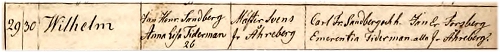 29 30 Wilhelm
Jan Henr Sandberg
Anna Tiderman
26
Mäster Svens
Åhreberg
Carl Fr. Sandberg Jan Er. Torgberg
Emerentia Tiderman alla fr Åhreberg